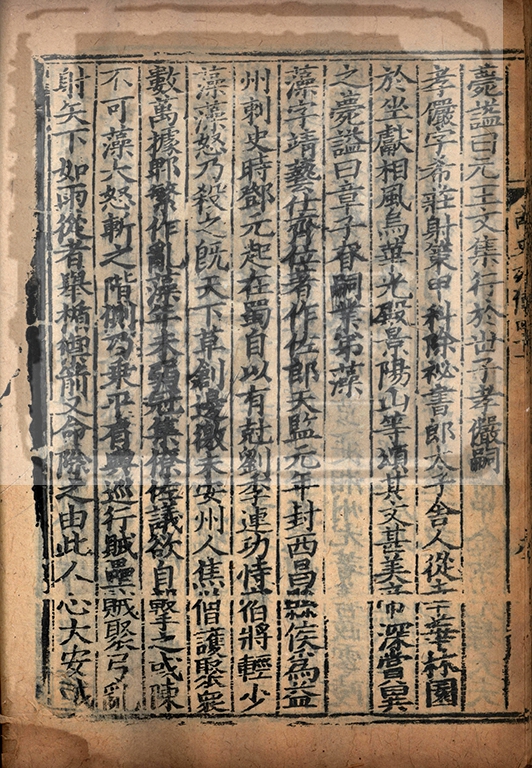 薨謚曰元王文集行於世子孝儼嗣
孝儼字希莊射策甲科除祕書郎太子舍人從幸華林園
於坐獻相風烏華光殿景陽山等頌其文甚美帝深賞異
之薨謚曰章子眘嗣業弟藻
藻字靖藝仕齊位著作佐郎天監元年封西昌縣侯爲益
州刺史時鄧元起在蜀自以有尅劉季連功恃宿將輕少
藻藻怒乃殺之旣天下草創邊徼未安州人焦僧護聚衆
數萬據郫繁作亂藻年未弱冠集僚佐議欲自擊之或陳
不可藻大怒斬之階側乃乘平肩輿巡行賊壘賊聚弓亂
射矢下如雨從者舉楯禦箭又命除之由此人心大安賊